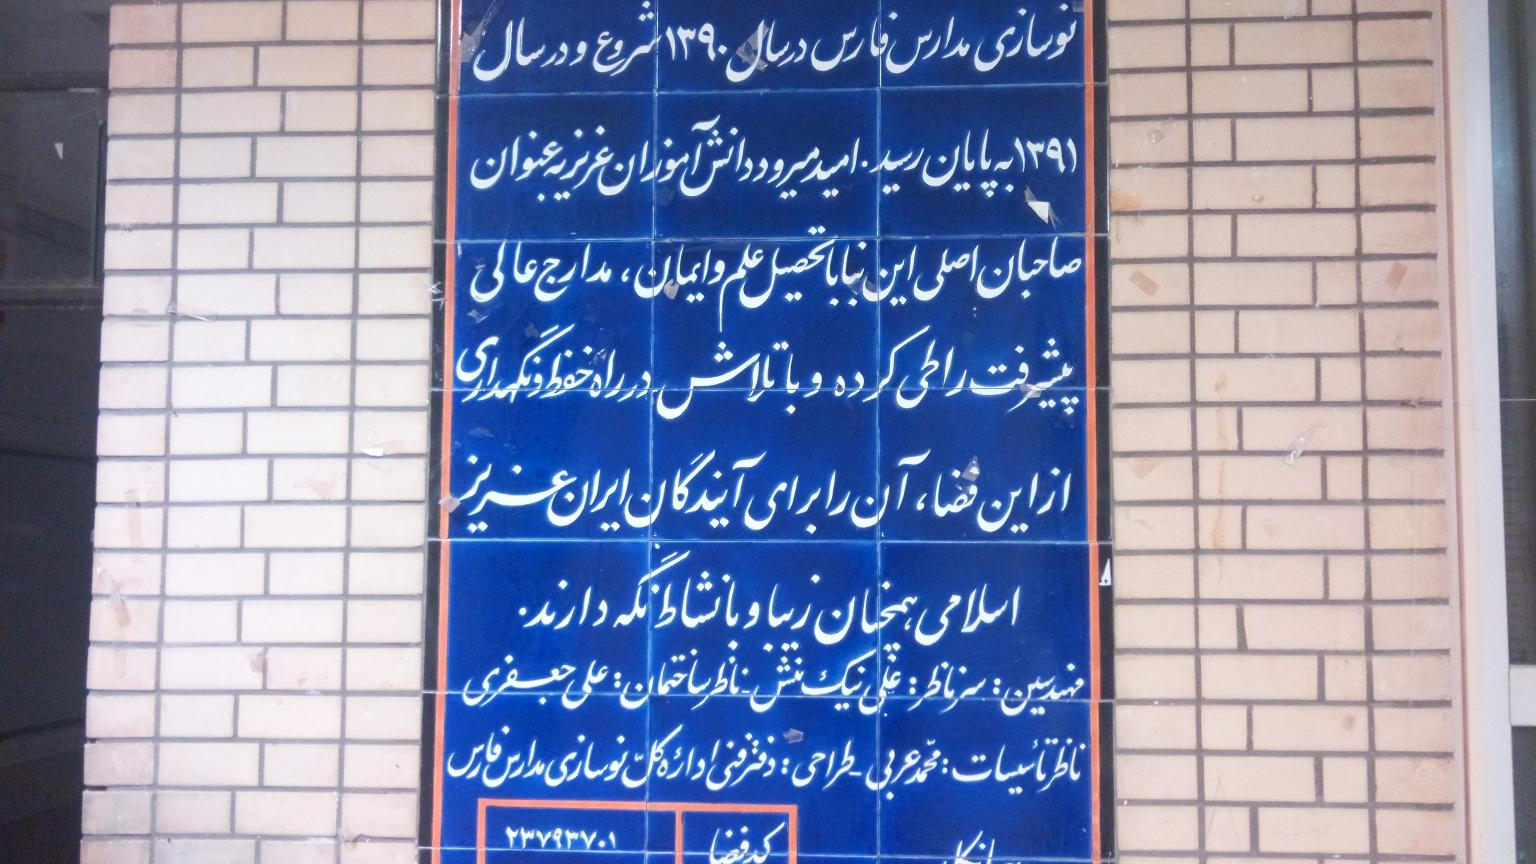 نوسازی مدارس فارس در سال ۱۳۹۰ شروع و در سال
۱۳۹۱ به پایان رسید. امید میرود دانش آموزان عزیز به عنوان
صاحبان اصلی این بنا با تحصیل علم و ایمان، مدارج عالی
پیشرفت را طی کرده و با تلاش در راه حفظ و نگهداری
از این فضا، آن را برای آیندگان ایران عزیز
اسلامی همچنان زیبا و با نشاط نگه دارند.
مهندسین: سرناظر: علی نیک منش - ناظر ساختمان: علی جعفری
ناظر تأسیسات: محمد عربی - طراحی: دفتر فنی اداره کلّ نوسازی مدارس فارس
کد فضا ۲۳۷۹۳۷۰۱